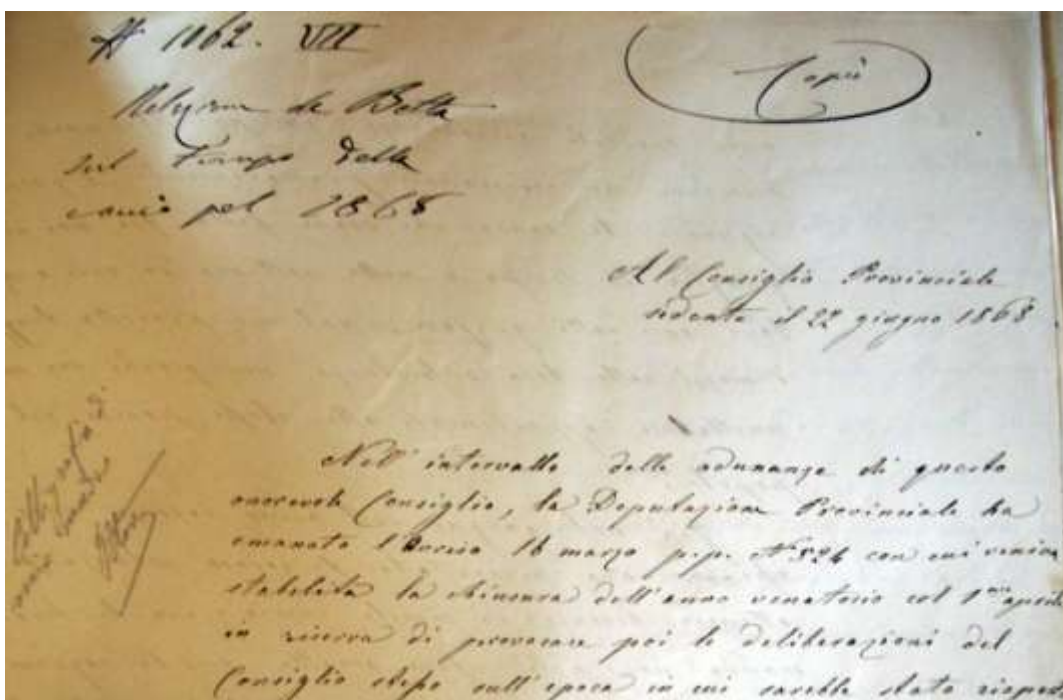 N 1062. VII
Relazione de Betta
sul Tempo della
caccia pel 1868
Copia
Al Consiglio Provinciale
sedente il 22 giugno 1868.
Nell' intervallo delle adunanze di questo
onorevole Consiglio, la Deputazione Provinciale ha
emanato l'Avviso 16 marzo p.p. N° 824 con cui veniva
stabilita la chiusura dell'anno venatorio col 1mo aprile
in riserva di provocare poi le deliberazioni del
Consiglio stesso sull'epoca in cui sarebbe stata
Calligrafia di
mio